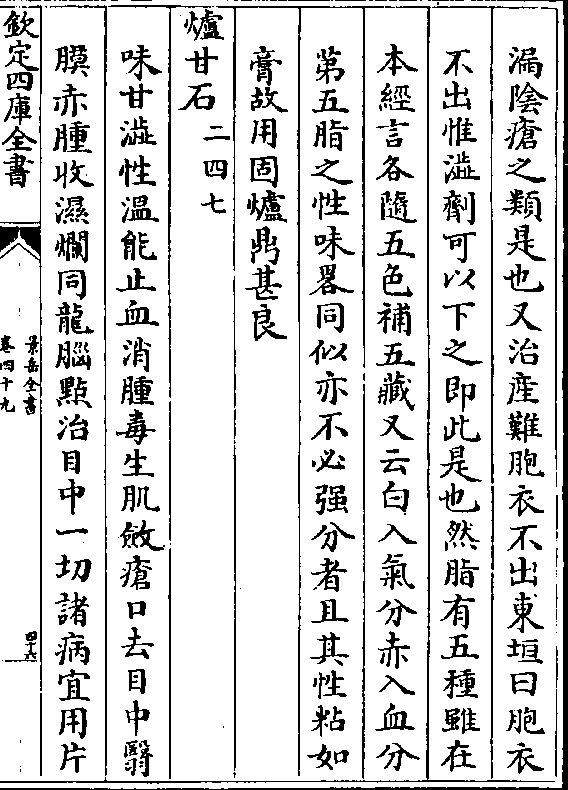 漏陰瘡之類是也又治産難胞衣不出東垣曰胞衣
不出惟澁劑可以下之即此是也然脂有五種雖在
本經言各隨五色補五藏又云白入氣分赤入血分
第五脂之性味畧同似亦不必强分者且其性粘如
膏故用固爐鼎甚良
爐甘石 二四七
味甘澁性溫能止血消腫毒生肌斂瘡口去目中翳
膜赤腫收濕爛同龍腦點治目中一切諸病宜用片
欽定四庫全書
景岳全書
卷四十九
四十六